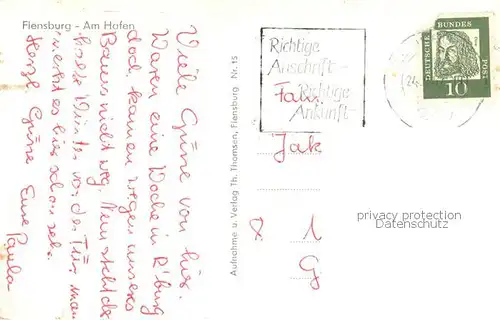 Flensburg - Am Hafen
Viele Grüsse von hier.
Waren eine Woche in R'burg
doch kamen wegen unseres
Baues nicht weg. Nun steht der
Winter vor der Tür, man
merkt es hier schon sehr.
Herzl. Grüsse Eure Paula
Aufnahme u. Verlag Th. Thomsen, Flensburg Nr. 15
Richtige
Anschrift -
Richtige
Ankunft -
DEUTSCHE
BUNDES
POST
10
Fam.
Jak
privacy protection
Datenschutz